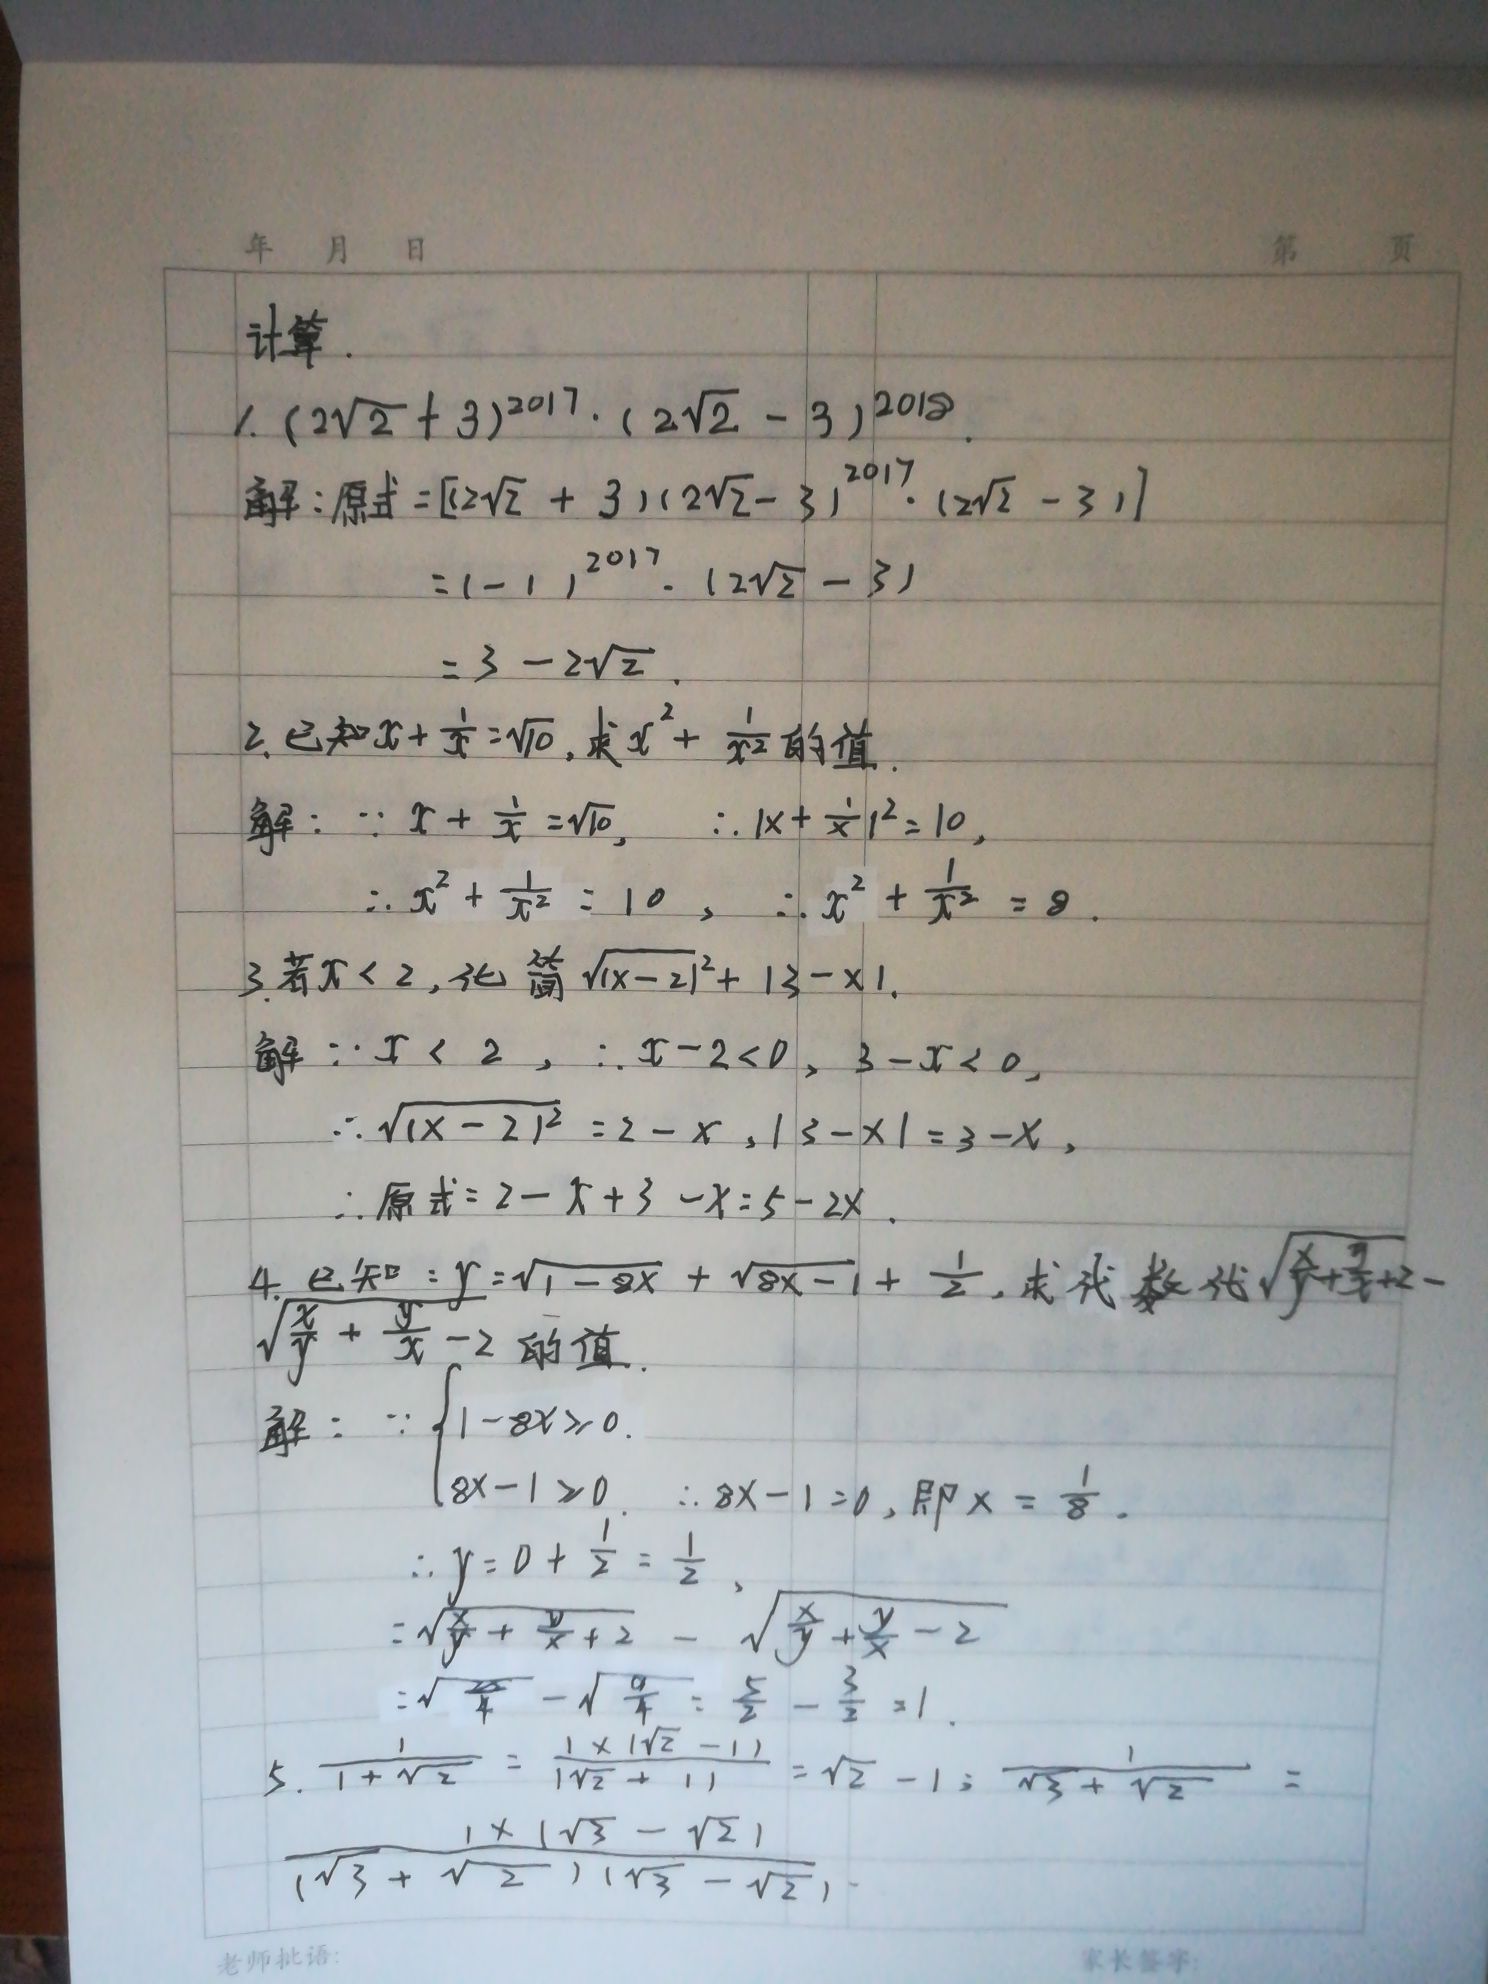 年 月 日 第 页
计算.
1. (2√2+3)^2017·(2√2-3)^2018.
解:原式=[(2√2+3)(2√2-3)^2017·(2√2-3)]
=(-1)^2017·(2√2-3)
=3-2√2.
2.已知x+1/x=√10,求x^2+1/x^2的值.
解:∵x+1/x=√10, ∴(x+1/x)^2=10,
∴x^2+1/x^2=10, ∴x^2+1/x^2=8.
3.若x<2,化简√(x-2)^2+|3-x|.
解∵x<2,∴x-2<0,3-x<0,
∴√(x-2)^2=2-x,|3-x|=3-x,
∴原式=2-x+3-x=5-2x.
4.已知:y=√(1-8x)+√(8x-1)+1/2,求代数式√(x/y+y/x+2)-
√(x/y+y/x-2)的值.
解:∵{1-8x≥0.
8x-1≥0. ∴8x-1=0,即x=1/8.
∴y=0+1/2=1/2,
=√(x/y+y/x+2)-√(x/y+y/x-2)
=√(25/4)-√(9/4)=5/2-3/2=1.
5. 1/(1+√2)=1×(√2-1)/(√2+1)=√2-1;1/(√3+√2)=
1×(√3-√2)/(√3+√2)(√3-√2).
老师批语: 家长签字: